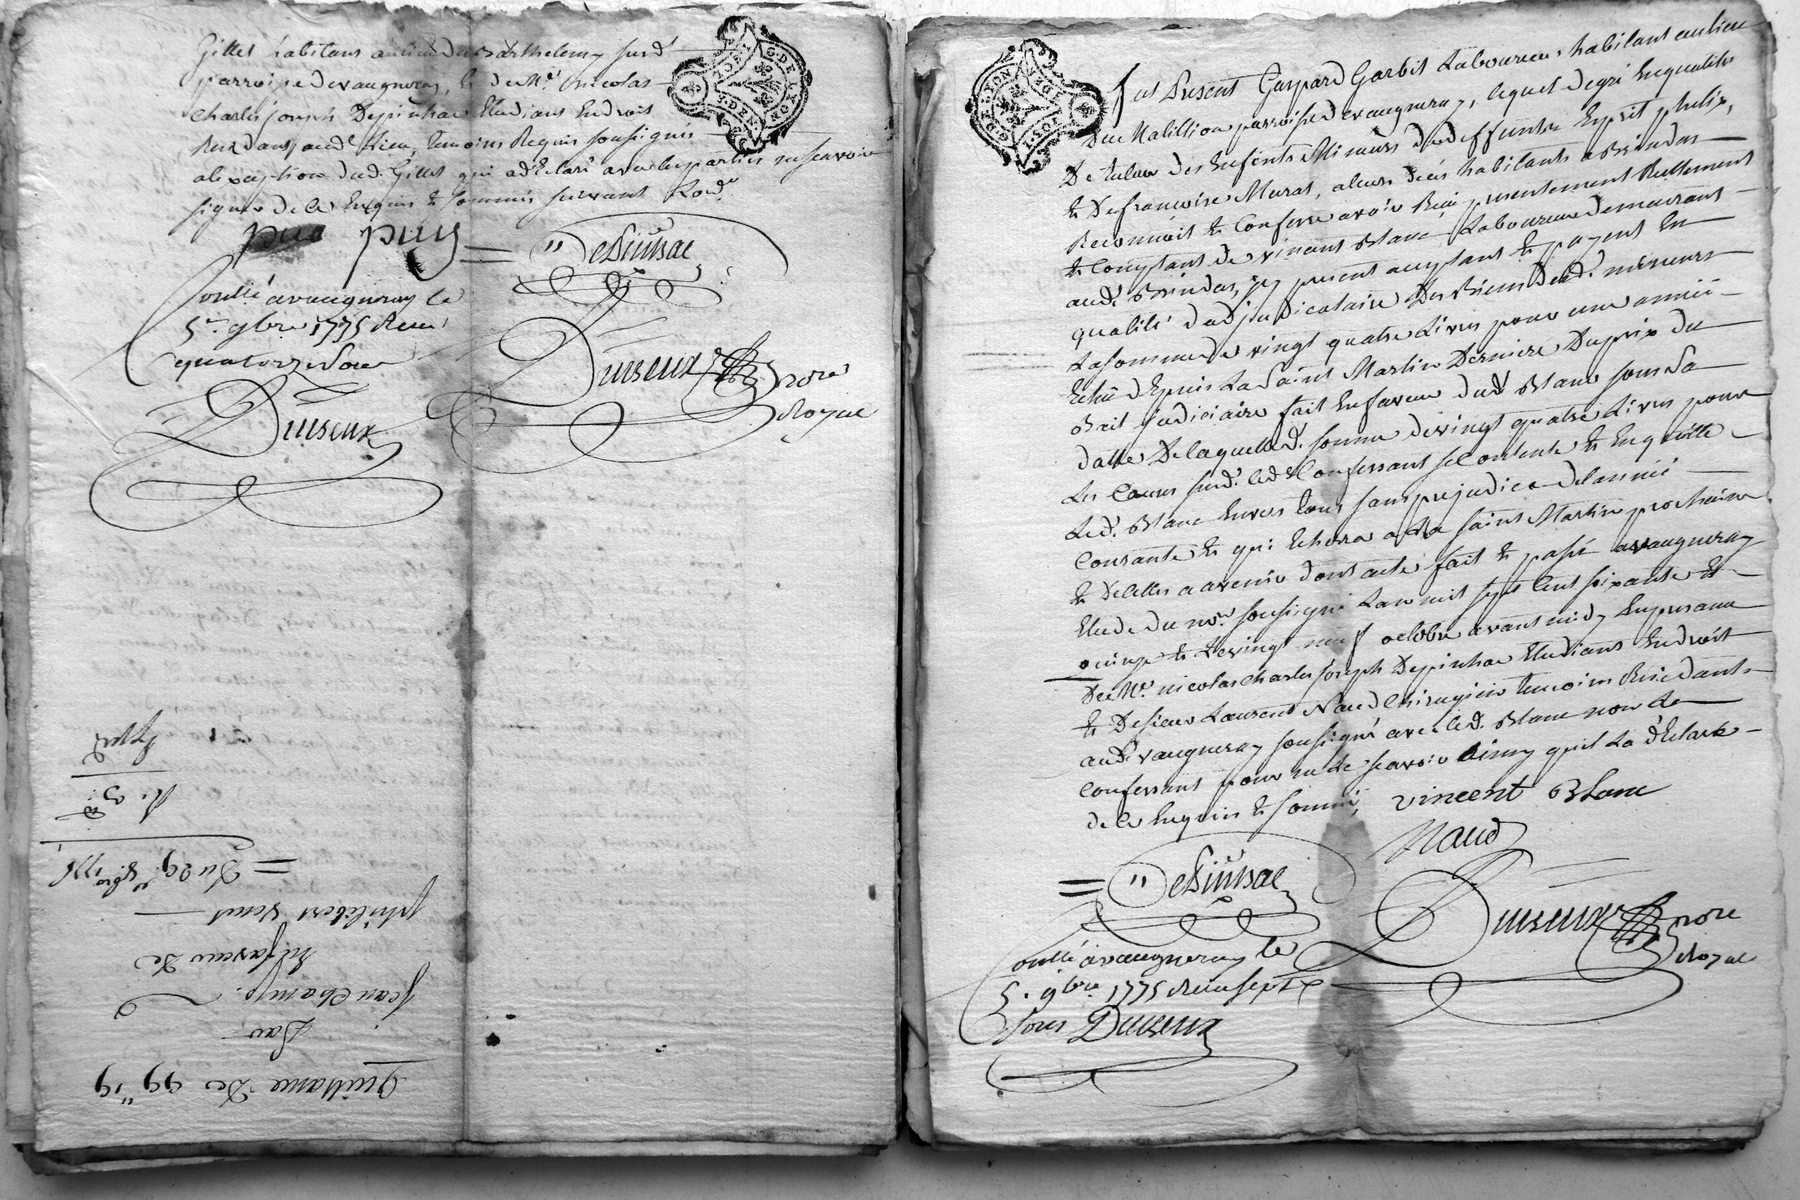 Gillet habitans au lieu de st Barthelemy susd
parroisse de vaugneray, et de Mr. Nicolas
Charles Joseph Depinhac Etudiant En droit
Residant aud. Lieu, temoins Requis soussignes
a l'exception dud. Gillet qui a déclaré avec les parties ne scavoir
signer de ce Enquis et sommés suivant L'ord.
puy
= Depinhac
Controllé a vaugneray le
5e. 9bre 1775 Recu
quatorze sous
notre
Royal
G. DE LYON
Sped
R. 9.
= Du 29e. 8bre 1775
philibert
En faveur de
Jean Champ.
Quittance De 99" 19
G. DE LYON
fut Present Gaspard Garbit Laboureur habitant au lieu
parroisse de vaugneray, lequel de gré En qualité
De tuteur des Enfents Mineurs de deffunts Esprit phelix,
et De francoise Murat, a leurs déces habitants a Brindas
Reconnoit et Confesse avoir Recu presentement Reellement
et Comptant de vincent Blanc Laboureur demeurant
aud. Brindas, icy present acceptant et payant En
qualité d'adjudicataire Des Biens desd. mineurs
La somme de vingt quatre Livres pour une année
Echue Depuis La Saint Martin Derniere Du prix du
Bail judiciaire fait En faveur dud. Blanc sous Sa
datte De laquelle d. somme de vingt quatre Livres pour
Les Causes susd. led. Confessant se Contente et En quitte
Led. Blanc Envers tous sans prejudice de l'année
Courante et qui Echera a La saint Martin prochaine
et de celles a avenir dont acte fait et passé a vaugneray
Etude du nore. soussigné L'an mil sept Cent soixante et
quinze et Le vingt neuf octobre avant midy En presence
De Mr. nicolas Charles Joseph Depinhac Etudiant En droit
et De sieur Laurent Naud Chirurgien temoins Residants
aud. vaugneray soussignés avec led. Blanc non Le
Confessant pour ne le scavoir ainsy qu'il La déclaré
de ce Enquis et sommé, vincent Blanc
Naud
= Depinhac
notre
Royal
Controllé a vaugneray le
5. 9bre. 1775 Recu sept
sous